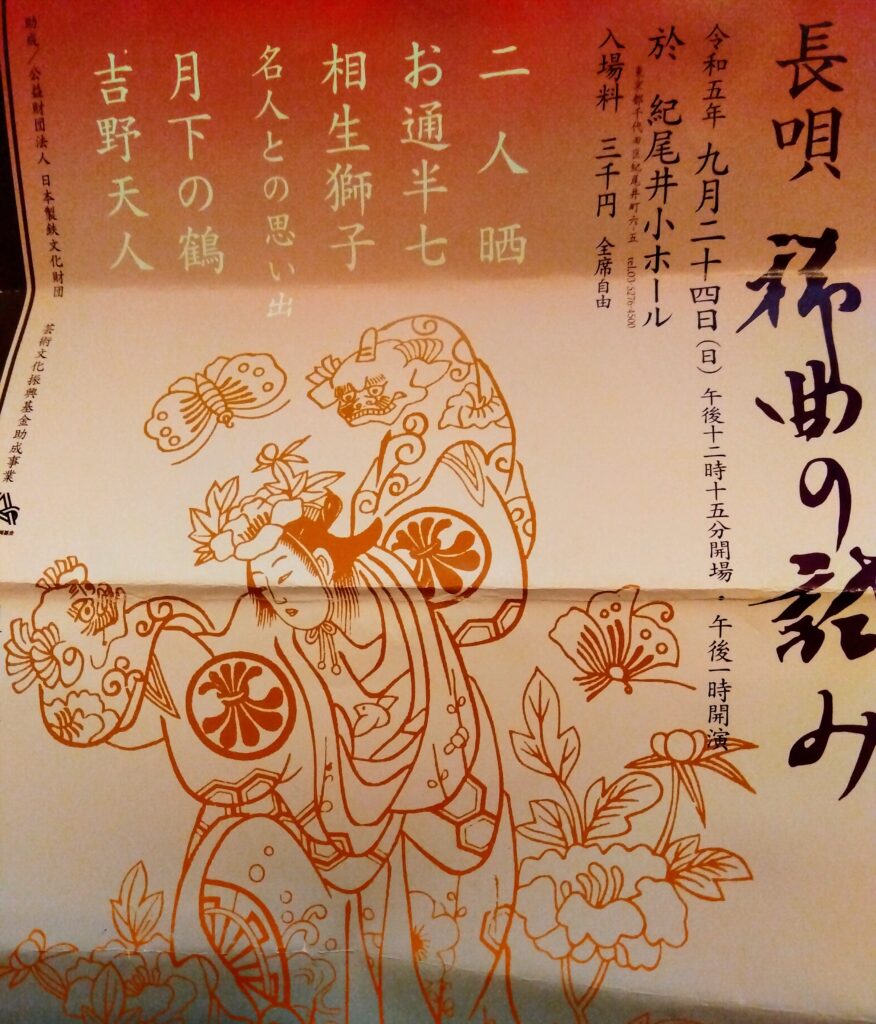 長唄 稀曲の試み
令和五年 九月二十四日（日） 午後十二時十五分開場・午後一時開演
於 紀尾井小ホール
東京都千代田区紀尾井町六-五 tel.03-3276-4500
入場料 三千円 全席自由
二人晒
お通半七
相生獅子
名人との思い出
月下の鶴
吉野天人
助成／公益財団法人 日本製鉄文化財団 芸術文化振興基金助成事業